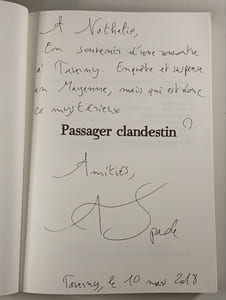 A Nathalie,
En souvenir d'une rencontre
à Taverny. Enquête et suspense
en Mayenne, mais qui est donc
ce mystérieux
Passager clandestin ?
Amitiés,
A Spade
Taverny, le 10 mars 2018